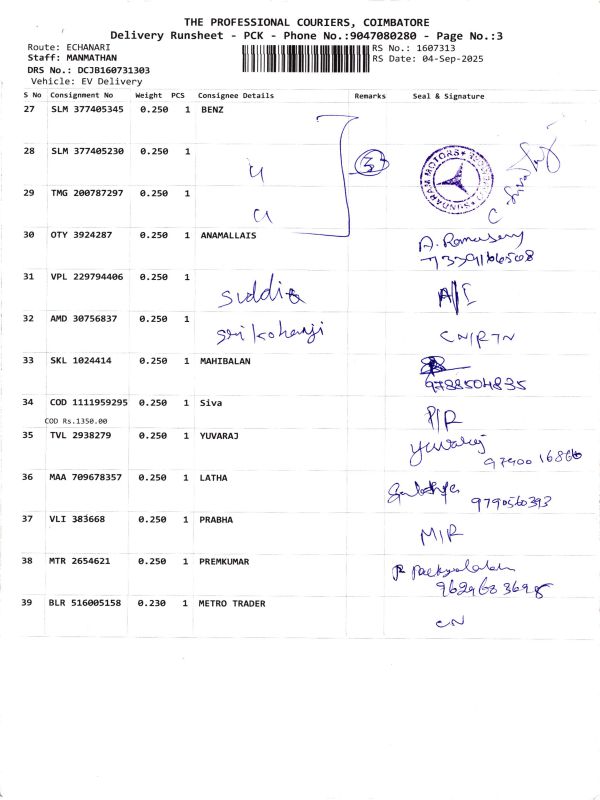 THE PROFESSIONAL COURIERS, COIMBATORE
Delivery Runsheet - PCK - Phone No.:9047080280 - Page No.:3
Route: ECHANARI
RS No.: 1607313
Staff: MANMATHAN
RS Date: 04-Sep-2025
DRS No.: DCJB160731303
Vehicle: EV Delivery
S No Consignment No Weight PCS Consignee Details Remarks Seal & Signature
27 SLM 377405345 0.250 1 BENZ
28 SLM 377405230 0.250 1
SUNDARAM MOTORS
29 TMG 200787297 0.250 1
30 OTY 3924287 0.250 1 ANAMALLAIS
A. Ramasamy
31 VPL 229794406 0.250 1
32 AMD 30756837 0.250 1
CN/RTN
33 SKL 1024414 0.250 1 MAHIBALAN
9788504835
34 COD 1111959295 0.250 1 Siva
P/R
COD Rs.1350.00
35 TVL 2938279 0.250 1 YUVARAJ
Yuvaraj
36 MAA 709678357 0.250 1 LATHA
9790560393
37 VLI 383668 0.250 1 PRABHA
M/R
38 MTR 2654621 0.250 1 PREMKUMAR
39 BLR 516005158 0.230 1 METRO TRADER
CN